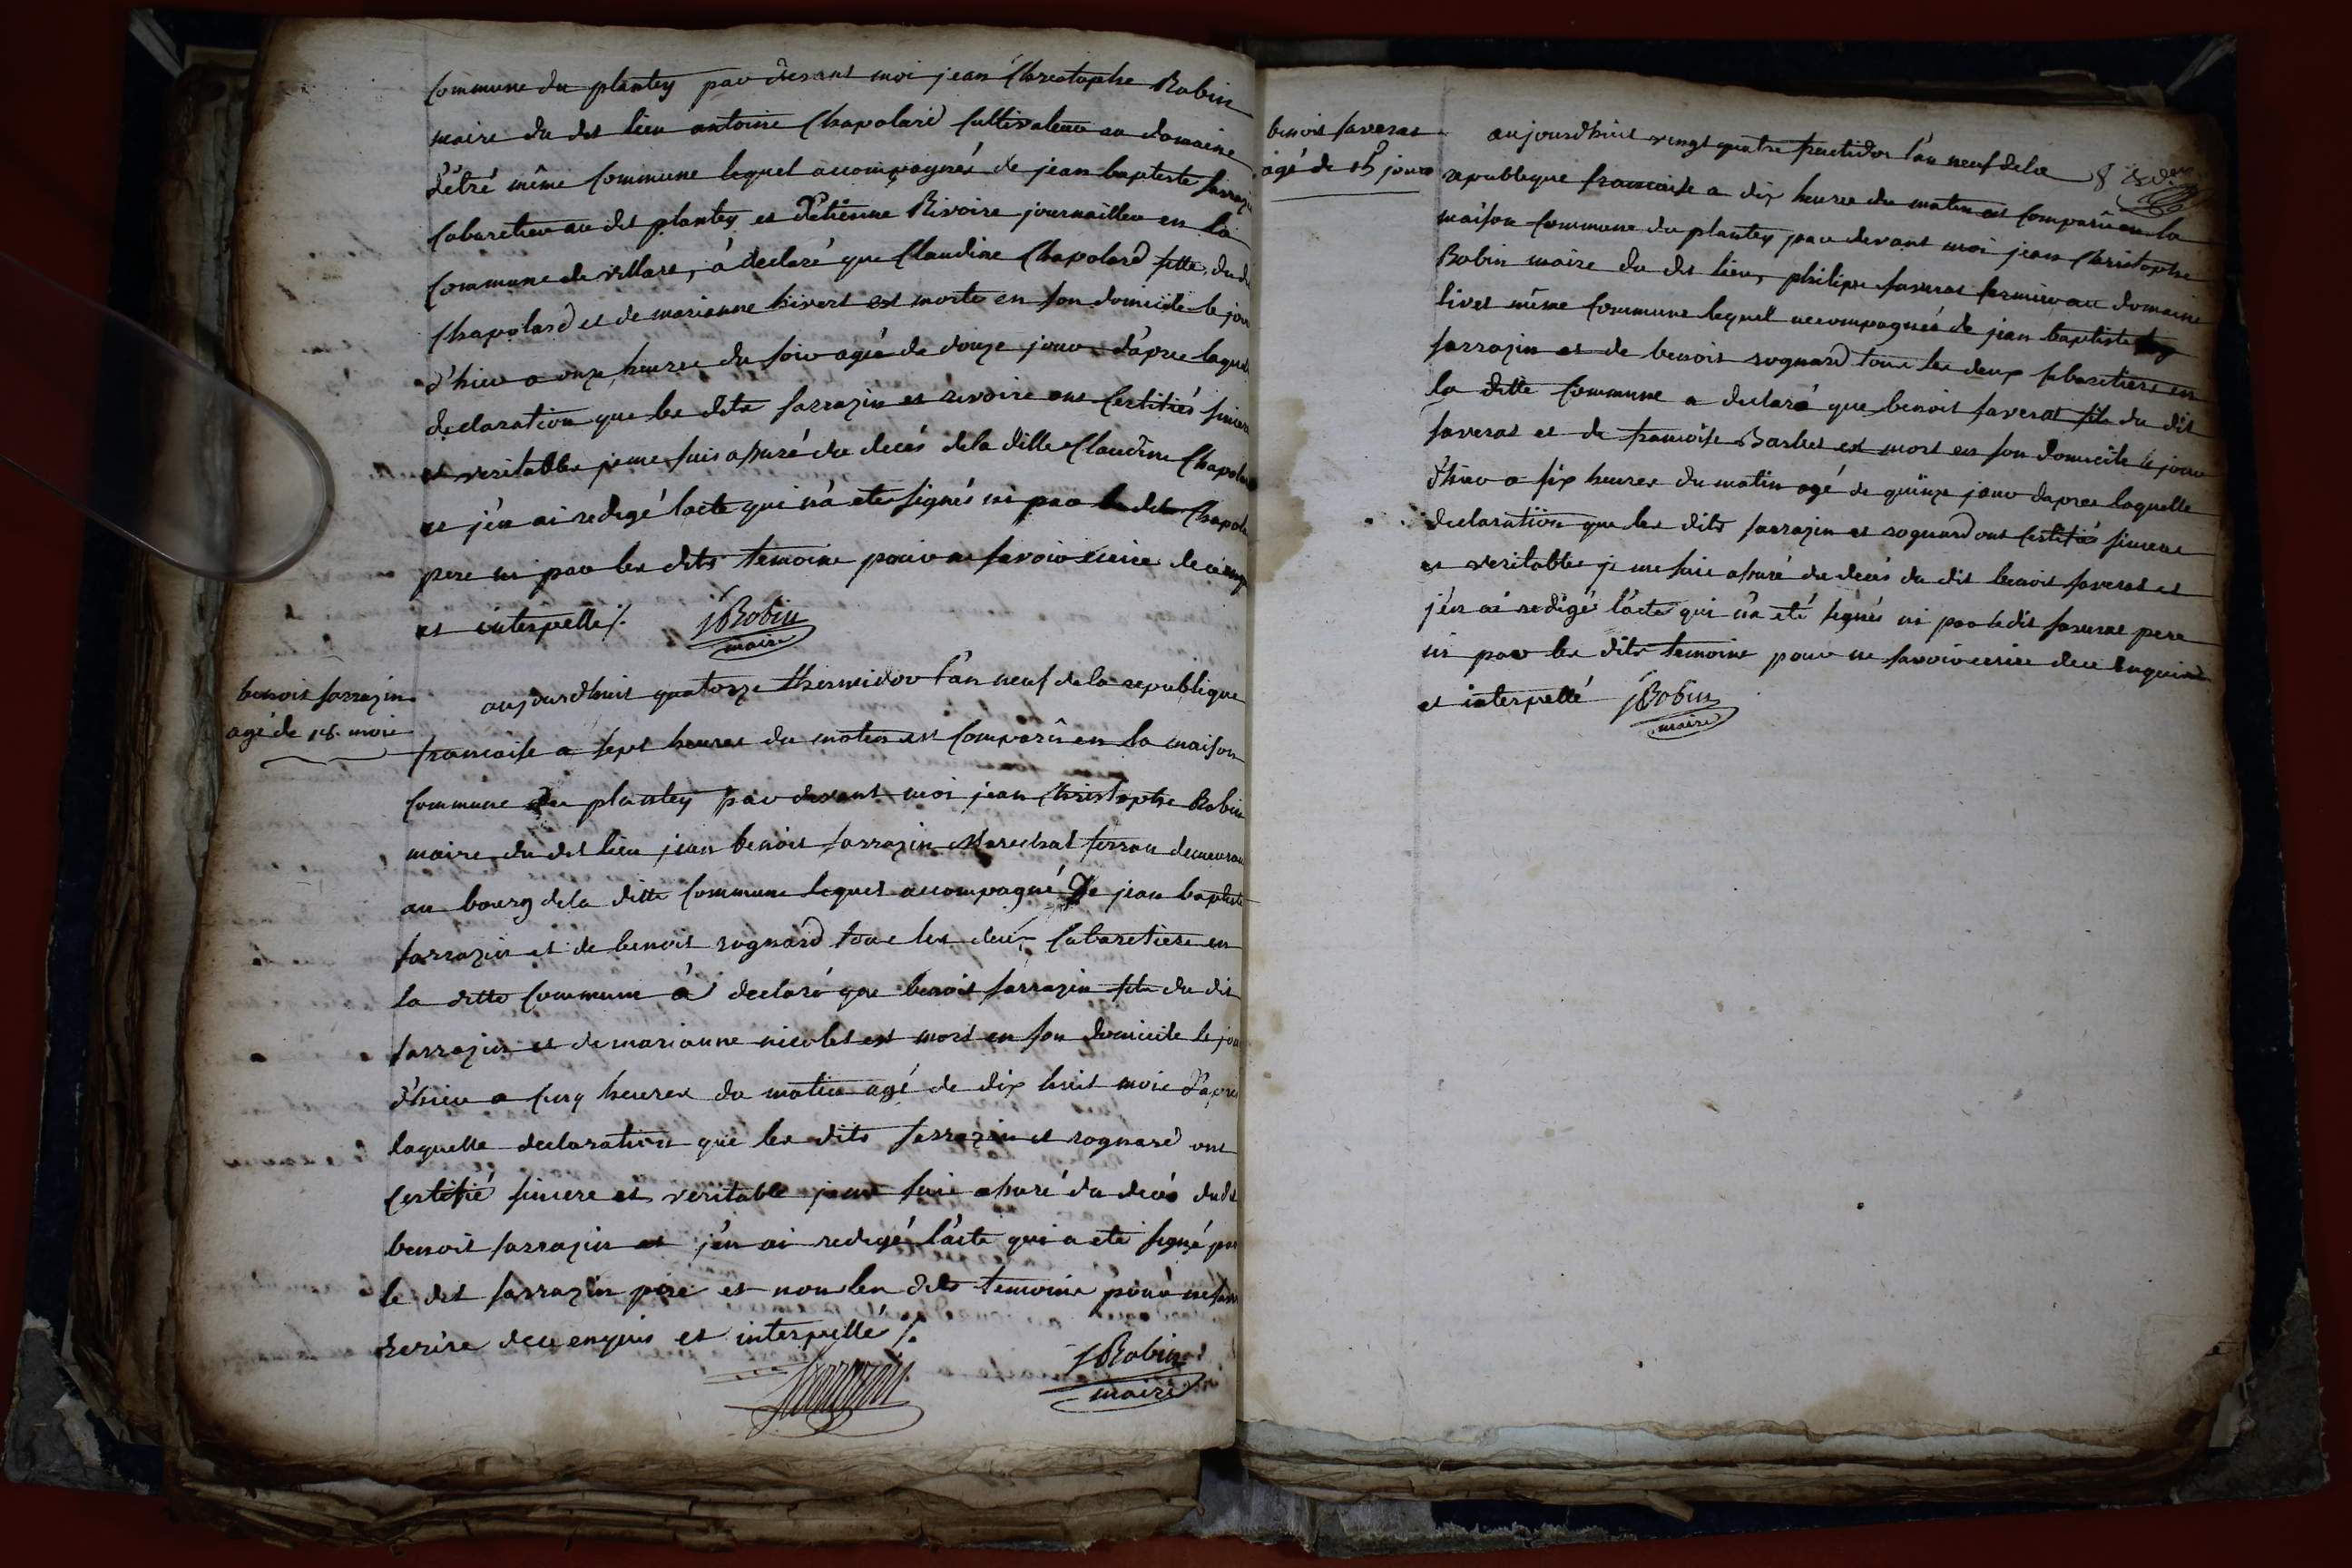 Commune du plantey par devant moi jean Christophe Robin
maire du dit lieu antoine Chapolard Cultivateur au domaine
d'étré même Commune lequel accompagnés de jean baptiste sarrazin
Cabaretier au dit plantey et d'étienne Rivoire journaillier en la
Commune de villars, à declaré que Claudine Chapolard fille du dit
Chapolard et de marianne hivert est morte en son domicile le jour
d'hier a onze heures du soir agée de douze jour d'apres laquelle
declaration que les dits sarrazin et rivoire ont Certifiés sincere
et veritables je me suis assuré du decés dela ditte Claudine Chapolard
et j'en ai redigé lacte qui n'a ete signés ni par le dit Chapolard
pere ni par les dits temoins pour ne savoir ecrire de ce enquis
et interpellé /.
JRobin
maire
benoit sarrazin
agé de 18. mois
aujourdhuit quatorze thermidor l'an neuf de la republique
francaise a sept heures du matin est Comparû en la maison
Commune du plantey par devant moi jean Christophe Robin
maire du dit lieu jean benoit sarrazin Marechal ferran demeurant
au bourg dela ditte Commune lequel accompagné De jean baptiste
sarrazin et de benoit rognard tous les deux Cabaretiers en
la ditte Commune à declaré que benoit sarrazin fils du dit
sarrazin et de marianne nicolet est mort en son domicile le jour
d'hier a cinq heures du matin agé de dix huit mois d'apres
laquelle declaration que les dits sarrazin et rognard ont
Certifié sincere et veritable je me suis assuré du decés dudit
benoit sarrazin et j'en ai redigé l'acte qui a eté signé par
le dit sarrazin pere et non les dits temoins pour ne savoir
ecrire dece enquis et interpellé /.
Sarrazin
JRobin
maire
benoit saverat
agé de 15 jours
aujourdhuit vingt quatre fructidor l'an neuf dela
republique francaise a dix heures du matin est Comparû en la
maison Commune du plantey par devant moi jean Christophe
Robin maire du dit lieu, philipe saverat fermier au domaine
livet même Commune lequel accompagnés de jean baptiste
sarrazin et de benoit rognard tous les deux Cabaretiers en
la ditte Commune a declaré que benoit saverat fils du dit
saverat et de francoise Barbet est mort en son domicile le jour
d'hier a six heures du matin agé de quinze jour dapres laquelle
declaration que les dits sarrazin et rognard ont Certifiés sincere
et veritables je me suis assuré du decés du dit benoit saverat et
j'en ai redigé l'acte qui n'a eté signés ni par le dit saverat pere
ni par les dits temoins pour ne savoir ecrire dece enquis
et interpellé
JRobin
maire